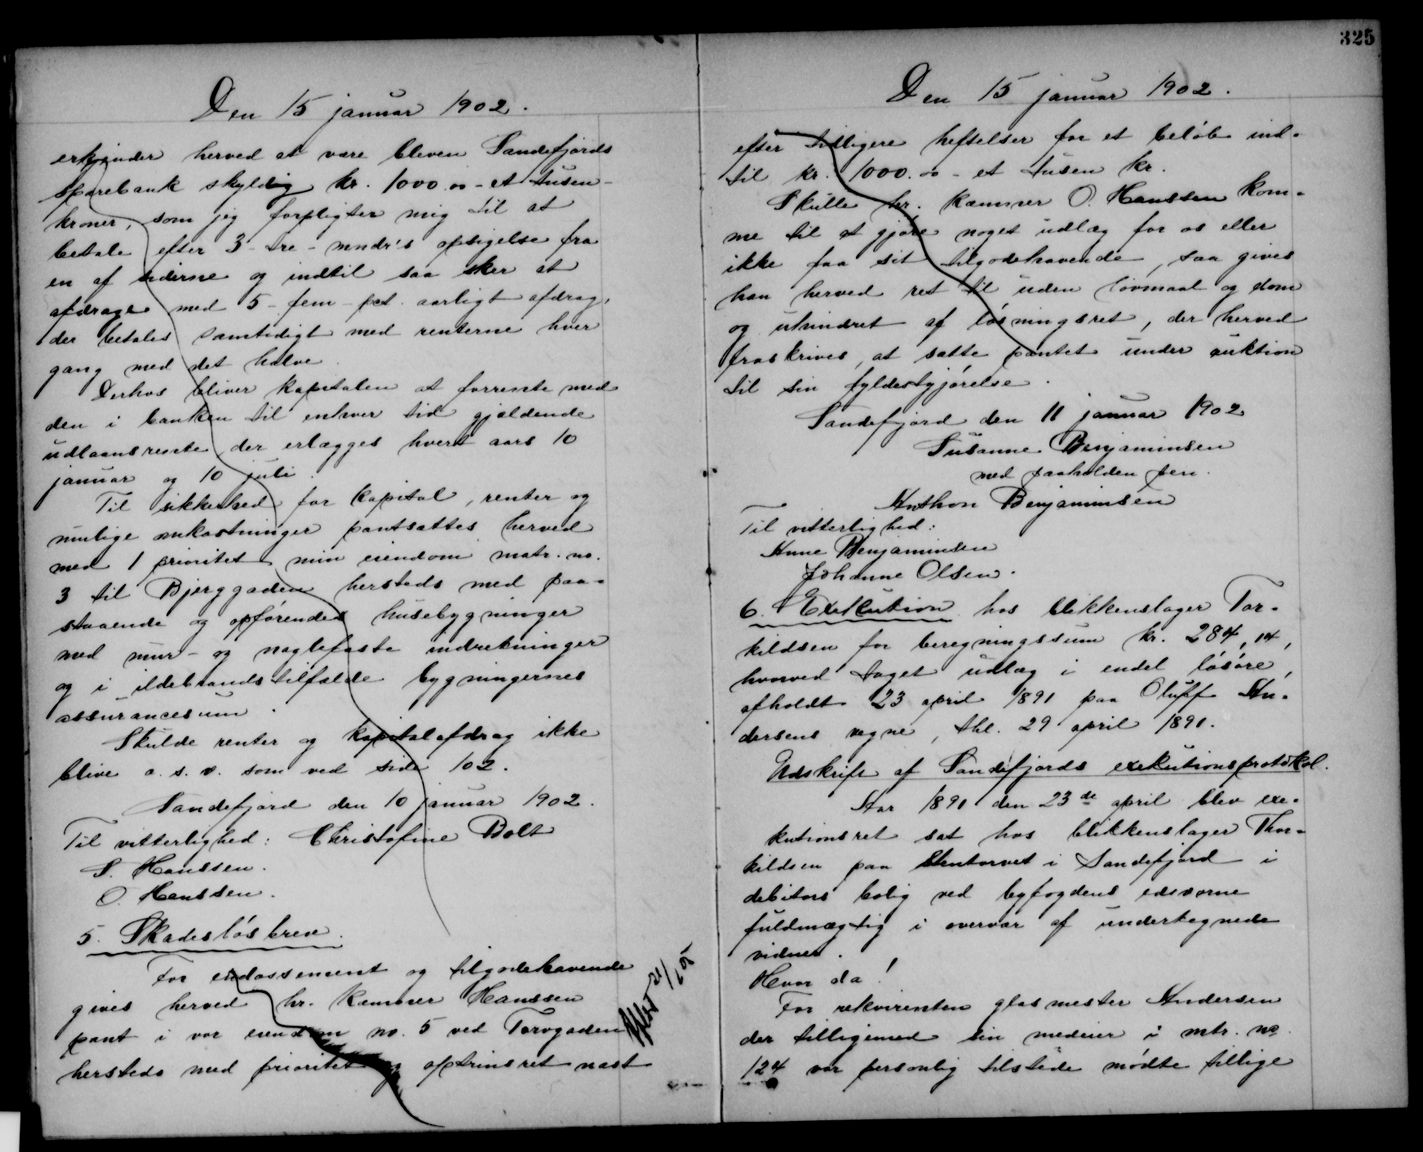 Den 15 januar 1902.
erkjender herved at være bleven Sandefjords
sparebank skyldig kr. 1000.00 - et tusen -
kroner, som jeg forpligter mig til at
betale efter 3 - tre - mndr's opsigelse fra
en af siderne og indtil saa sker at
afdrage med 5 - fem - pct. aarligt afdrag,
der betales samtidigt med renterne hver
gang med det halve.
Derhos bliver kapitalen at forrente med
den i banken til enhver tid gjældende
udlaansrente der erlægges hvert aars 10
januar og 10 juli.
Til sikkerhed for kapital, renter og
mulige omkostninger pantsættes herved
med 1 prioritet min eiendom matr. no.
3 til Bjerggaden hersteds med paa-
staaende og opførendes husebygninger
med mur- og naglefaste indretninger
og i ildebrandstilfælde bygningernes
assurancesum.
Skulde renter og kapitalafdrag ikke
blive o. s. v. som ved side 102.
Sandefjord den 10 januar 1902.
Til vitterlighed: Christofine Bolt
S. Hanssen.
O. Hanssen.
5. Skadesløsbrev.
For endossement og tilgodehavende
gives herved hr. kæmner Hanssen
pant i vor eiendom no. 5 ved Torvgaden
hersteds med prioritet og optrinsret næst
325
Den 15 januar 1902.
efter tidligere heftelser for et beløb ind-
til kr. 1000.00 - et tusen kr.
Skulle hr. kæmner O. Hanssen kom-
me til at gjøre noget udlæg for os eller
ikke faa sit tilgodehavende, saa gives
han herved ret til uden lovmaal og dom
og uhindret af løsningsret, der herved
fraskrives, at sætte pantet under auktion
til sin fyldestgjørelse.
Sandefjord den 11 januar 1902
Susanne Benjaminsen
med paaholden pen.
Anthon Benjaminsen
Til vitterlighed:
Anne Benjaminsen
Johanne Olsen.
6. Exekution hos blikkenslager Tor-
kildsen for beregningssum kr. 284,14,
hvorved taget udlæg i endel løsøre,
afholdt 23 april 1891 paa Oluff An-
dersens vegne, thl. 29 april 1891.
Udskrift af Sandefjords exekutionsprotokol.
Aar 1891 den 23de april blev exe-
kutionsret sat hos blikkenslager Thor-
kildsen paa i Sandefjord i
debitors bolig ved byfogdens edsvorne
fuldmægtig i overvær af undertegnede
vidner.
Hvor da!
For rekvirenten glasmester Andersen
der tilligemed sin medeier i mtr. no.
124 var personlig tilstede mødte tillige